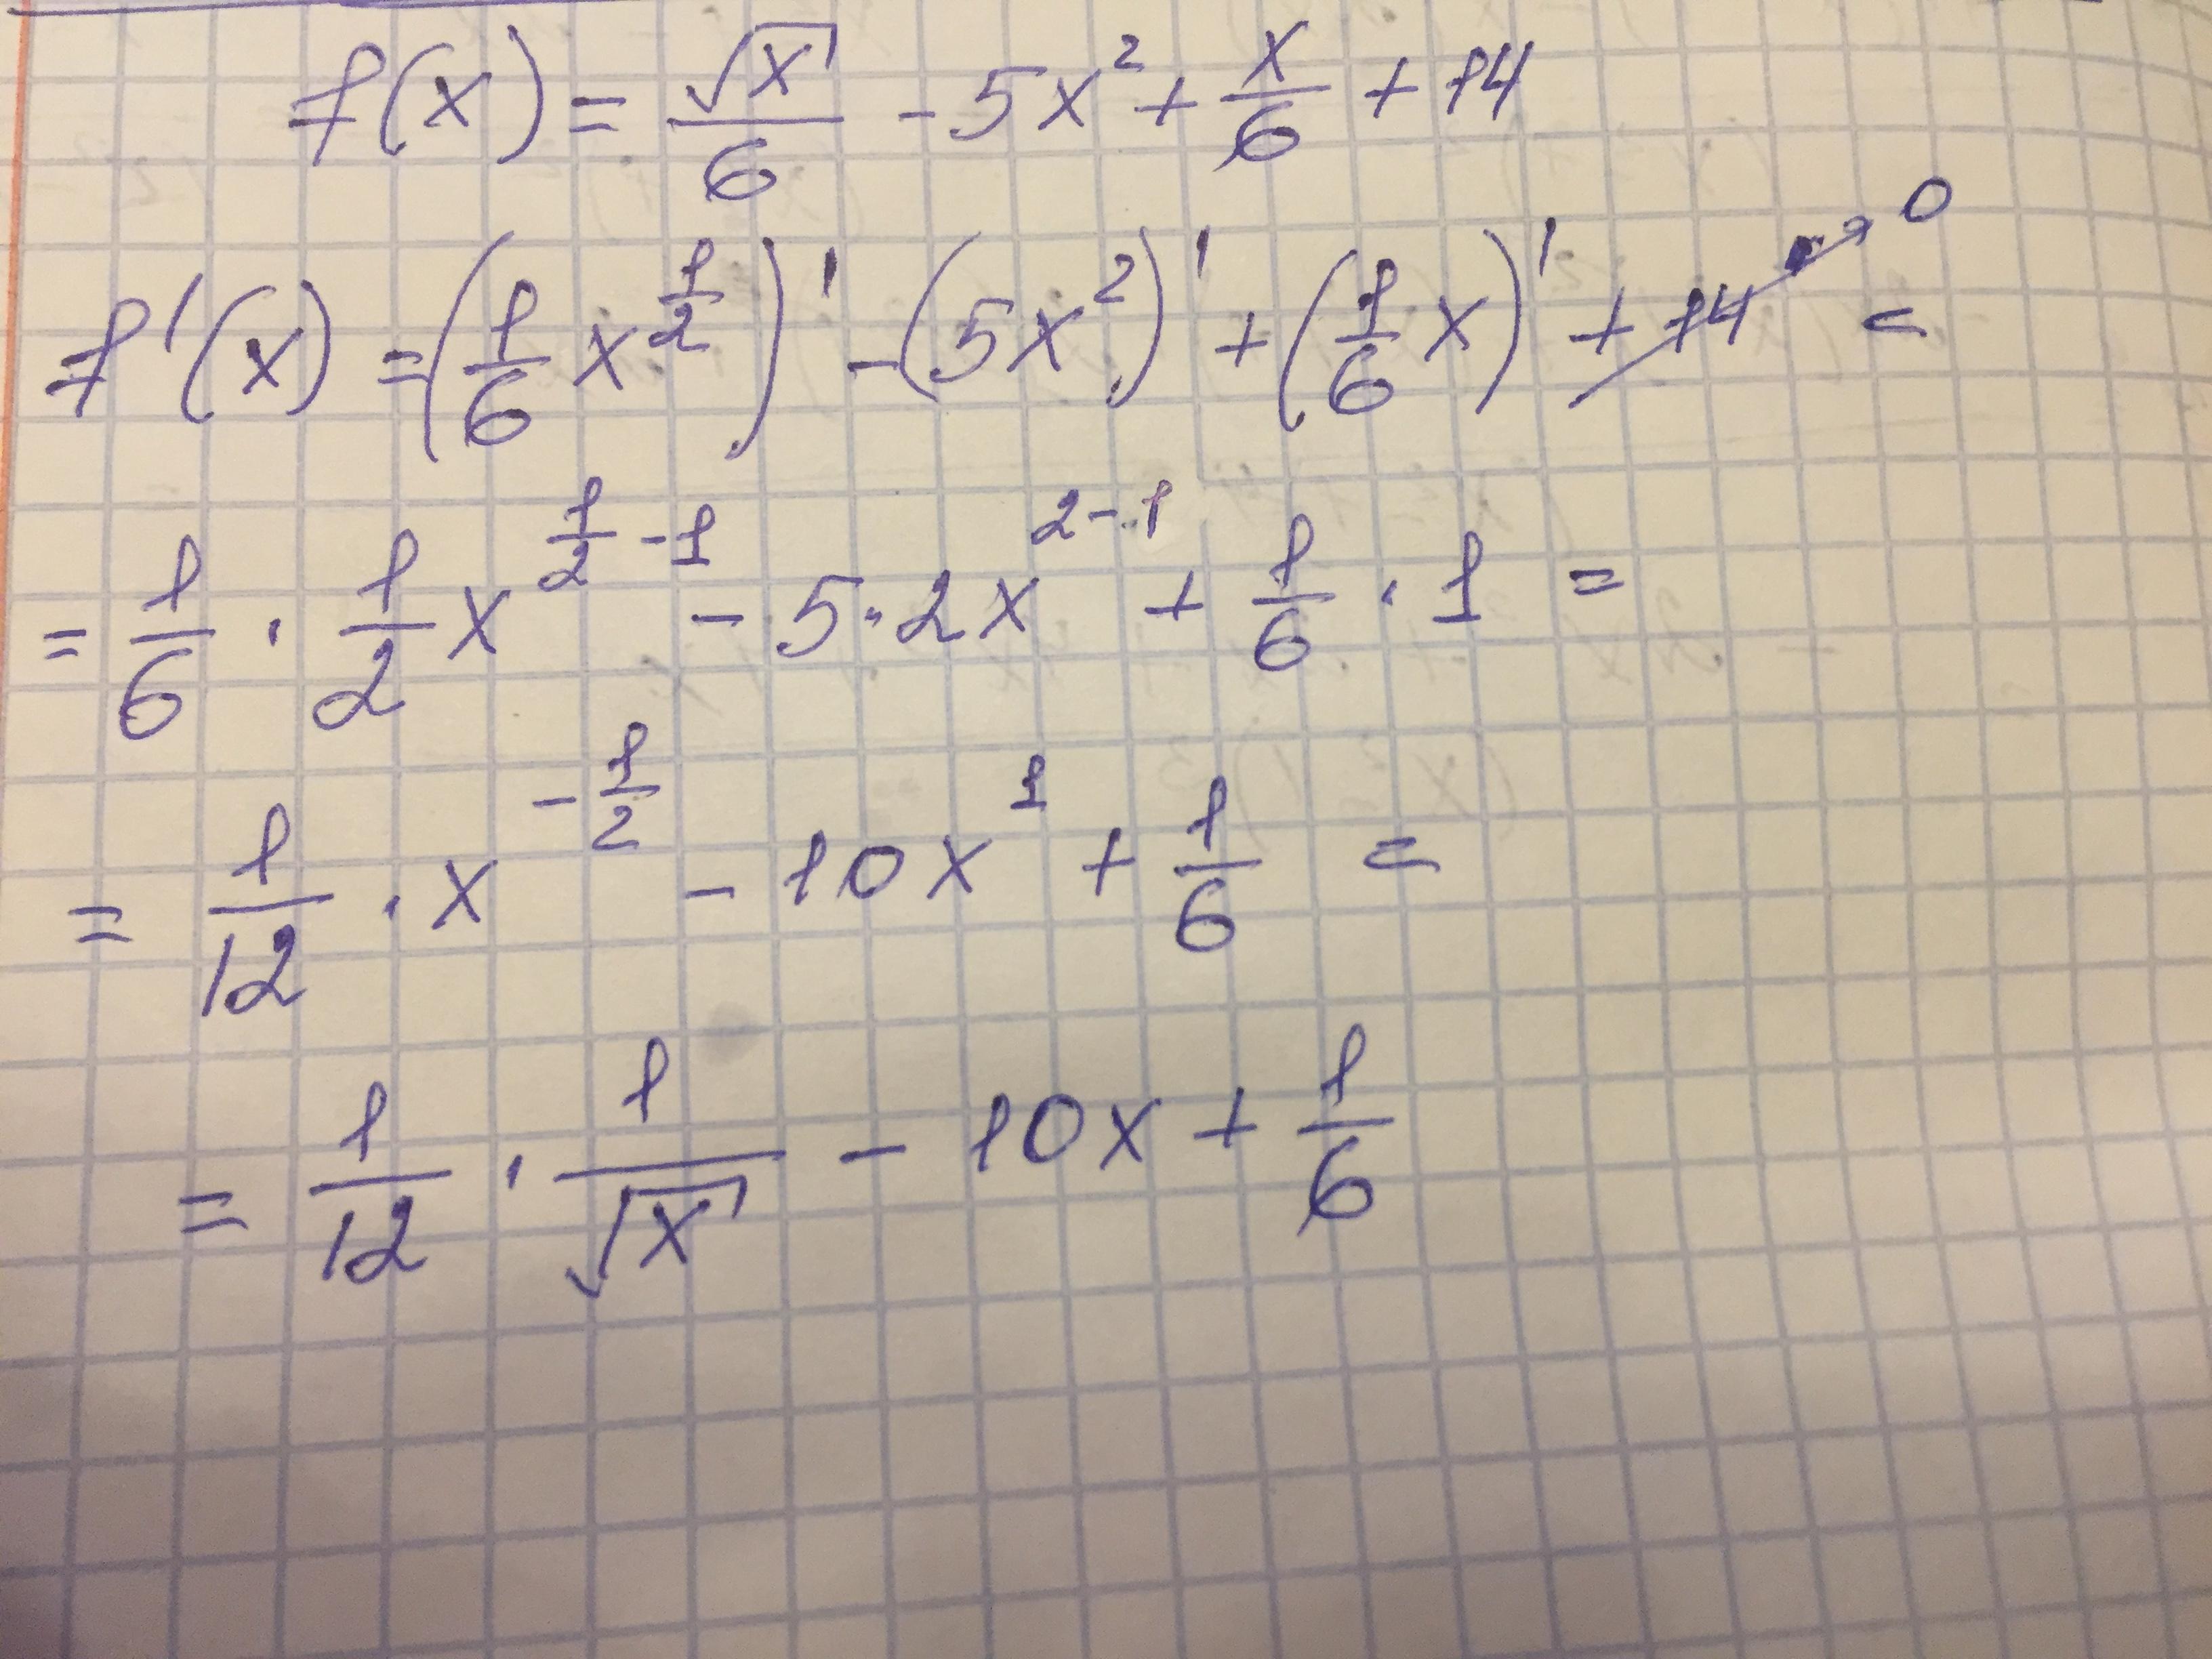 f(x) = √x/6 - 5x² + x/6 + 14
f'(x) = (1/6 x^(1/2))' - (5x²)' + (1/6 x)' + 14 → 0 =
= 1/6 · 1/2 x^(1/2 - 1) - 5·2x^(2-1) + 1/6 · 1 =
= 1/12 · x^(-1/2) - 10x^1 + 1/6 =
= 1/12 · 1/√x - 10x + 1/6